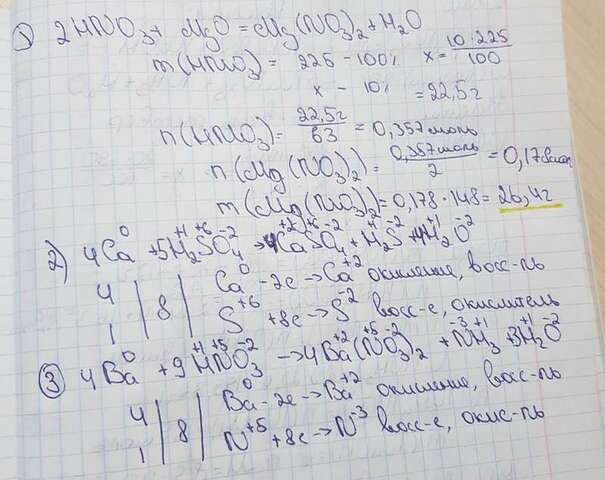 1) 2HNO₃ + MgO = Mg(NO₃)₂ + H₂O
m(HNO₃) = 225 - 100% x = 10·225/100
x - 10% = 22,5г
n(HNO₃) = 22,5г/63 = 0,357моль
n(Mg(NO₃)₂) = 0,357моль/2 = 0,178моль
m(Mg(NO₃)₂) = 0,178·148 = 26,4г
2) 4Ca⁰ + 5H₂⁺¹S⁺⁶O₄⁻² → 4Ca⁺²S⁺⁶O₄⁻² + H₂⁺¹S⁻² + 4H₂⁺¹O⁻²
4 | 8 | Ca⁰ - 2e → Ca⁺² окисление, восс-ль
1 | | S⁺⁶ + 8e → S⁻² восс-е, окислитель
3) 4Ba⁰ + 9H⁺¹N⁺⁵O₃⁻² → 4Ba⁺²(N⁺⁵O₃⁻²)₂ + N⁻³H₃⁺¹ + 3H₂⁺¹O⁻²
4 | 8 | Ba⁰ - 2e → Ba⁺² окисление, восс-ль
1 | | N⁺⁵ + 8e → N⁻³ восс-е, окис-ль